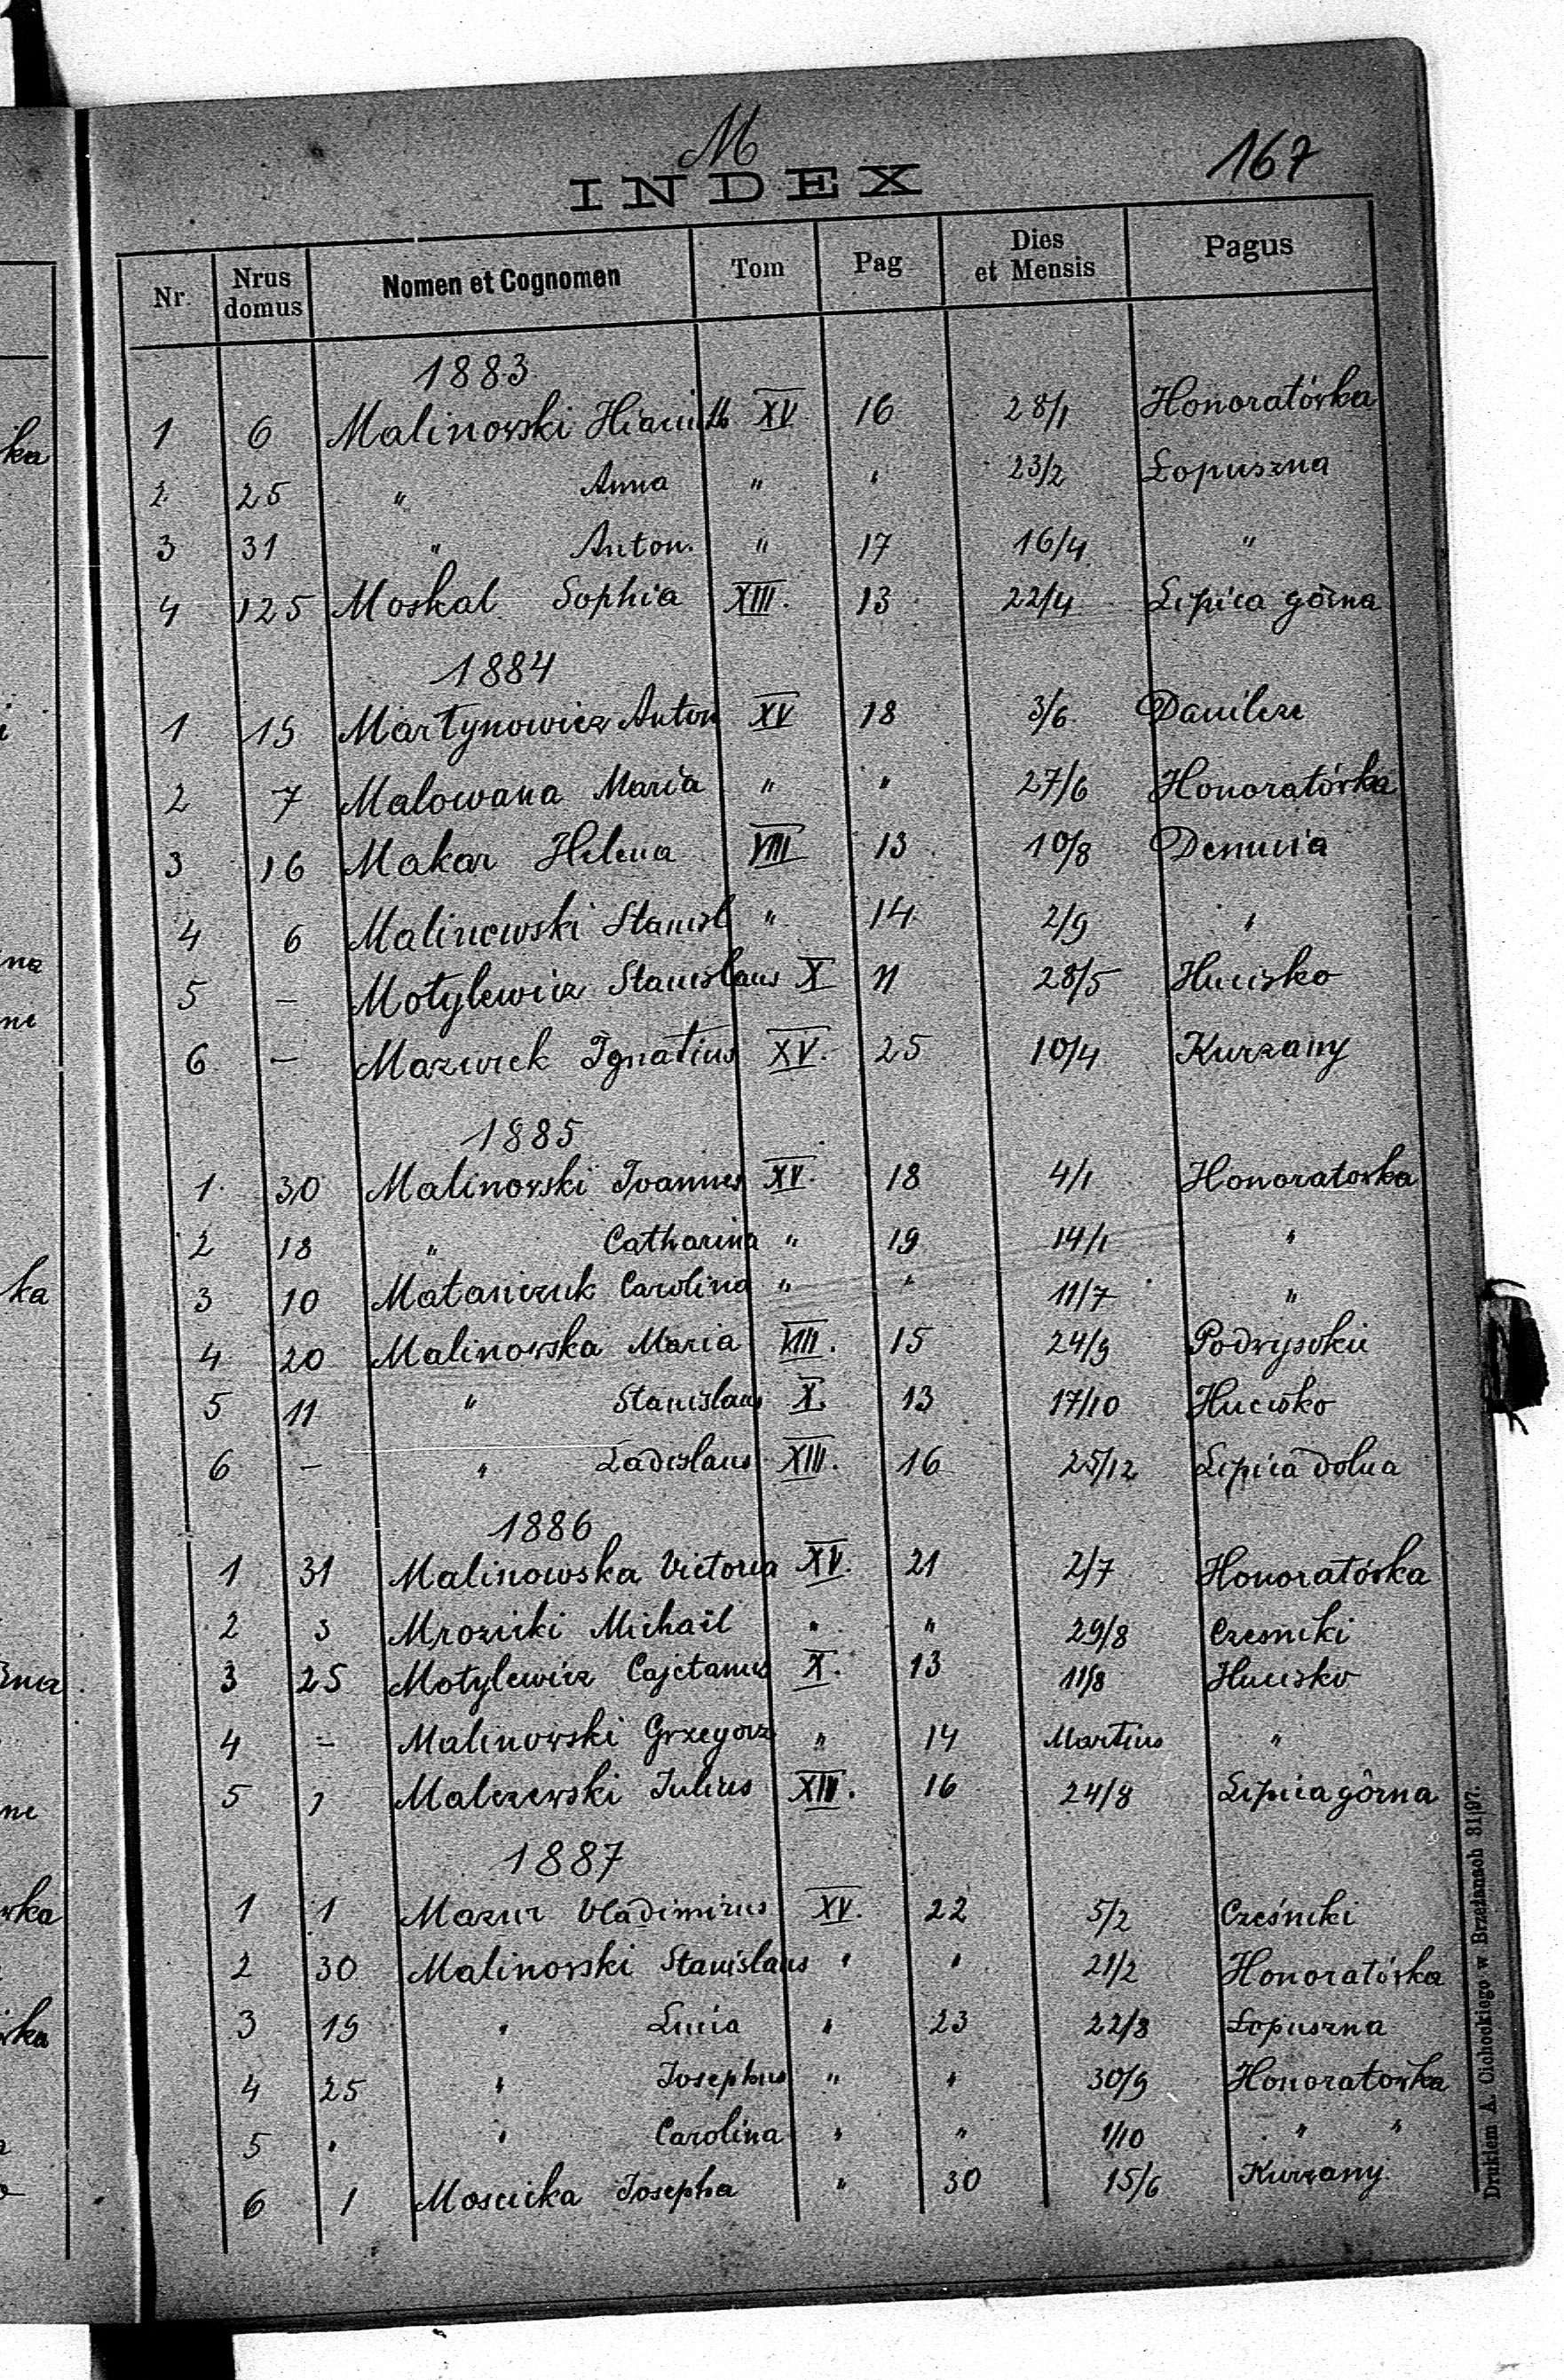 M
167
INDEX
Nr Nrus domus Nomen et Cognomen Tom Pag Dies et Mensis Pagus
1883
1 6 Malinowski Hiacinth XV 16 28/1 Honoratówka
2 25 " Anna " " 23/2 Łopuszna
3 31 " Anton. " 17 16/4 "
4 125 Moskal Sophia XIII. 13 22/4 Lipica górna
1884
1 15 Martynowicz Anton XV 18 3/6 Danilcze
2 7 Malowana Maria " " 27/6 Honoratówka
3 16 Makar Helena VIII 13 10/8 Demnia
4 6 Malinowski Stanisl " 14 2/9 "
5 - Motylewicz Stanislaus X 11 28/5 Hucisko
6 - Mazurek Ignatius XV. 25 10/4 Kurzany
1885
1. 30 Malinowski Joannes XV. 18 4/1 Honoratowka
2 18 " Catharina " 19 14/1 "
3 10 Matanczuk Carolina " " 11/7 "
4 20 Malinowska Maria VIII. 15 24/9 Podwysokie
5 11 " Stanislaus X. 13 17/10 Hucisko
6 - " Ladislaus XIII. 16 25/12 Lipica dolna
1886
1 31 Malinowska Victoria XV. 21 2/7 Honoratówka
2 3 Mrozicki Michail " " 29/8 Czesniki
3 25 Motylewicz Cajetanus X. 13 11/8 Hucisko
4 - Malinowski Grzegorz " 14 Martius "
5 1 Malczewski Julius XIII. 16 24/8 Lipica górna
1887
1 1 Mazur Vladimirus XV. 22 5/2 Cześniki
2 30 Malinowski Stanislaus " " 21/2 Honoratówka
3 19 " Lucia " 23 22/8 Łopuszna
4 25 " Josephus " " 30/9 Honoratowka
5 " " Carolina " " 1/10 " "
6 1 Moscicka Josepha " 30 15/6 Kurzany
Drukiem A. Cichockiego w Brzeżanach 81|97.